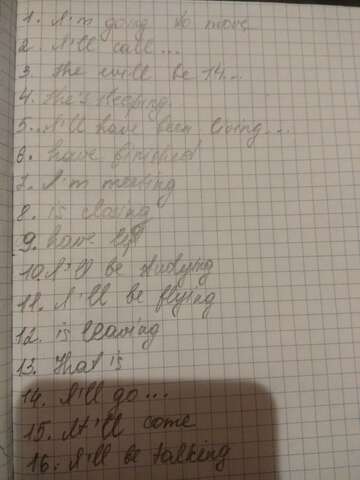 1. I'm going to move
2. I'll call ...
3. She will be 14...
4. She's sleeping
5. I'll have been living...
6. have finished
7. I'm meeting
8. is closing
9. have left
10. I'll be studying
11. I'll be flying
12. is leaving
13. That is
14. I'll go ...
15. It'll come
16. I'll be talking